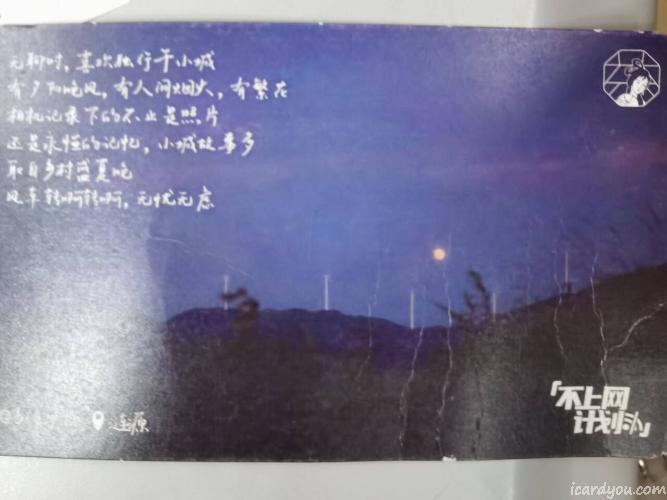 无聊时，喜欢独行于小城
有夕阳晚风，有人间烟火，有繁花
相机记录下的不止是照片
还是永恒的记忆，小城故事多
取自乡村盛夏晚
风车转啊转啊，无忧无虑
涟源
「不上网
计划」
icardyou.com